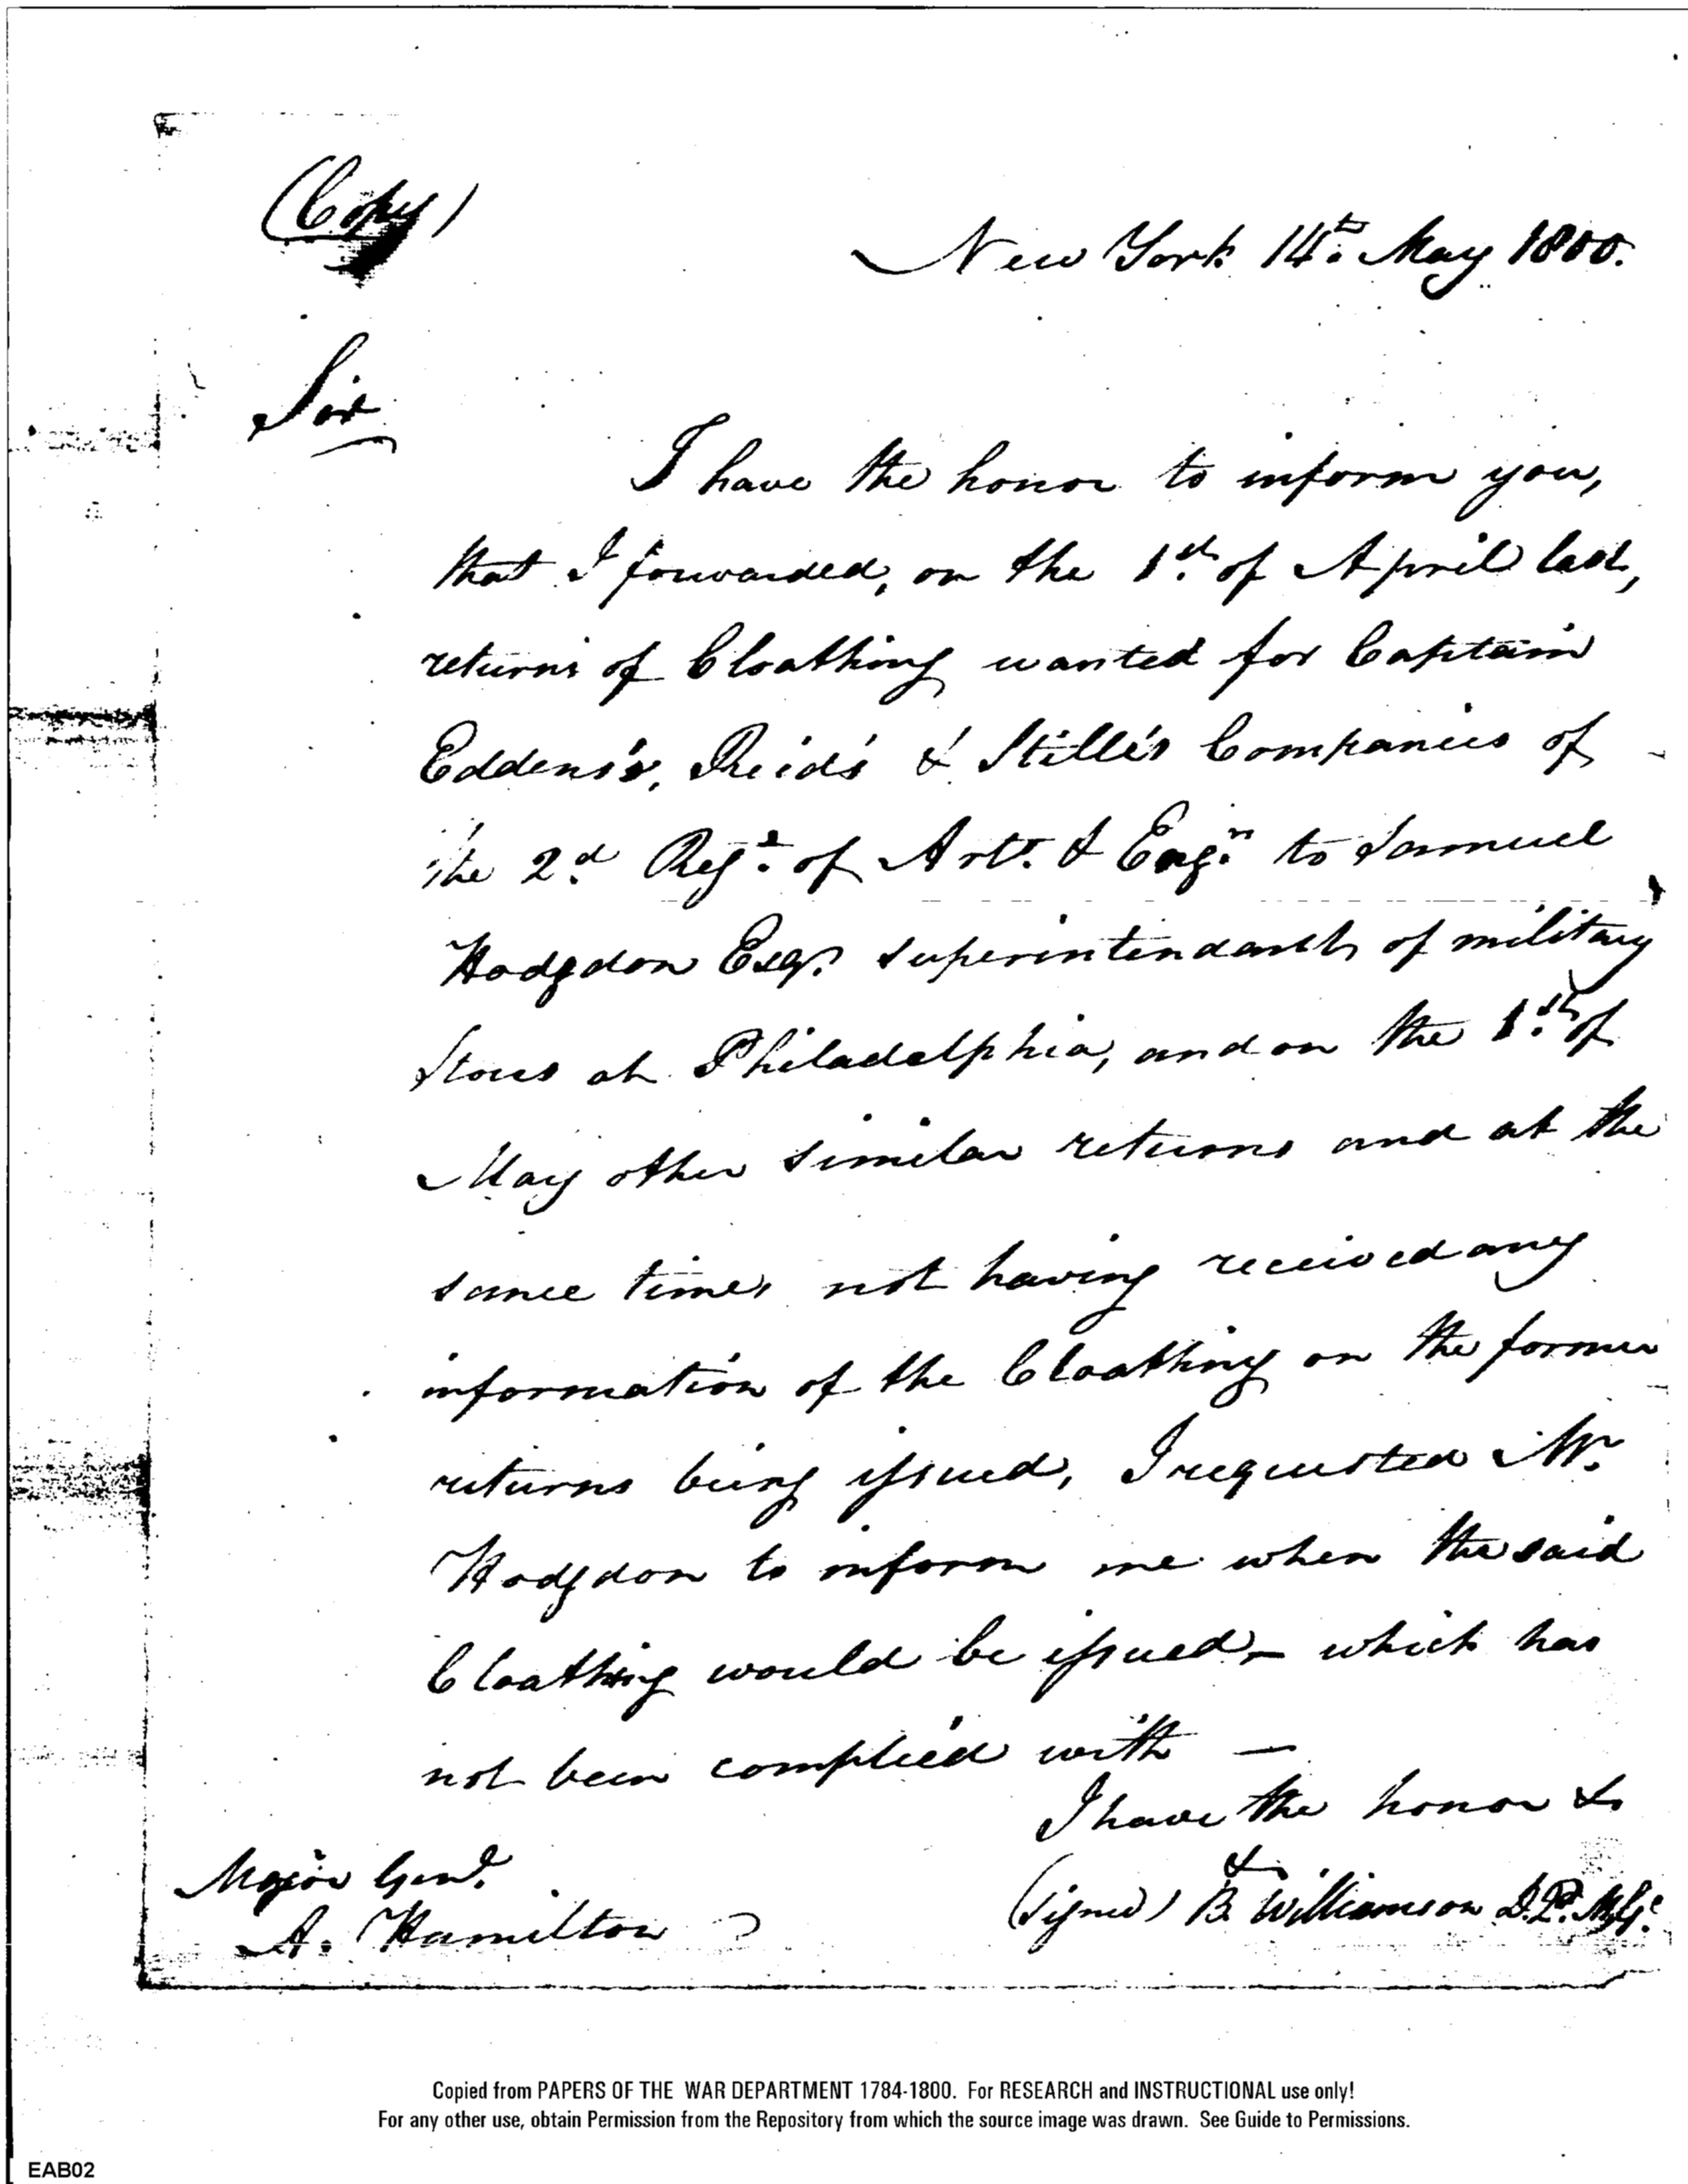 (Copy)
New York 14th May 1800.
Sir
I have the honor to inform you,
that I forwarded, on the 1st of April last,
returns of Cloathing wanted for Captain
Eddens's, Reid's & Stille's Companies of
the 2d Regt of Arty & Engrs to Samuel
Hodgdon Esqr. superintendant of military
Stores at Philadelphia, and on the 1st of
May other similar returns and at the
same time, not having received any
information of the Cloathing on the former
returns being issued, I requested Mr.
Hodgdon to inform me when the said
Cloathing would be issued – which has
not been complied with —
I have the honor &c
&c
Major Genl.
(signed) B. Williamson D.P.M.G.
A. Hamilton
Copied from PAPERS OF THE WAR DEPARTMENT 1784-1800. For RESEARCH and INSTRUCTIONAL use only!
For any other use, obtain Permission from the Repository from which the source image was drawn. See Guide to Permissions.
EAB02